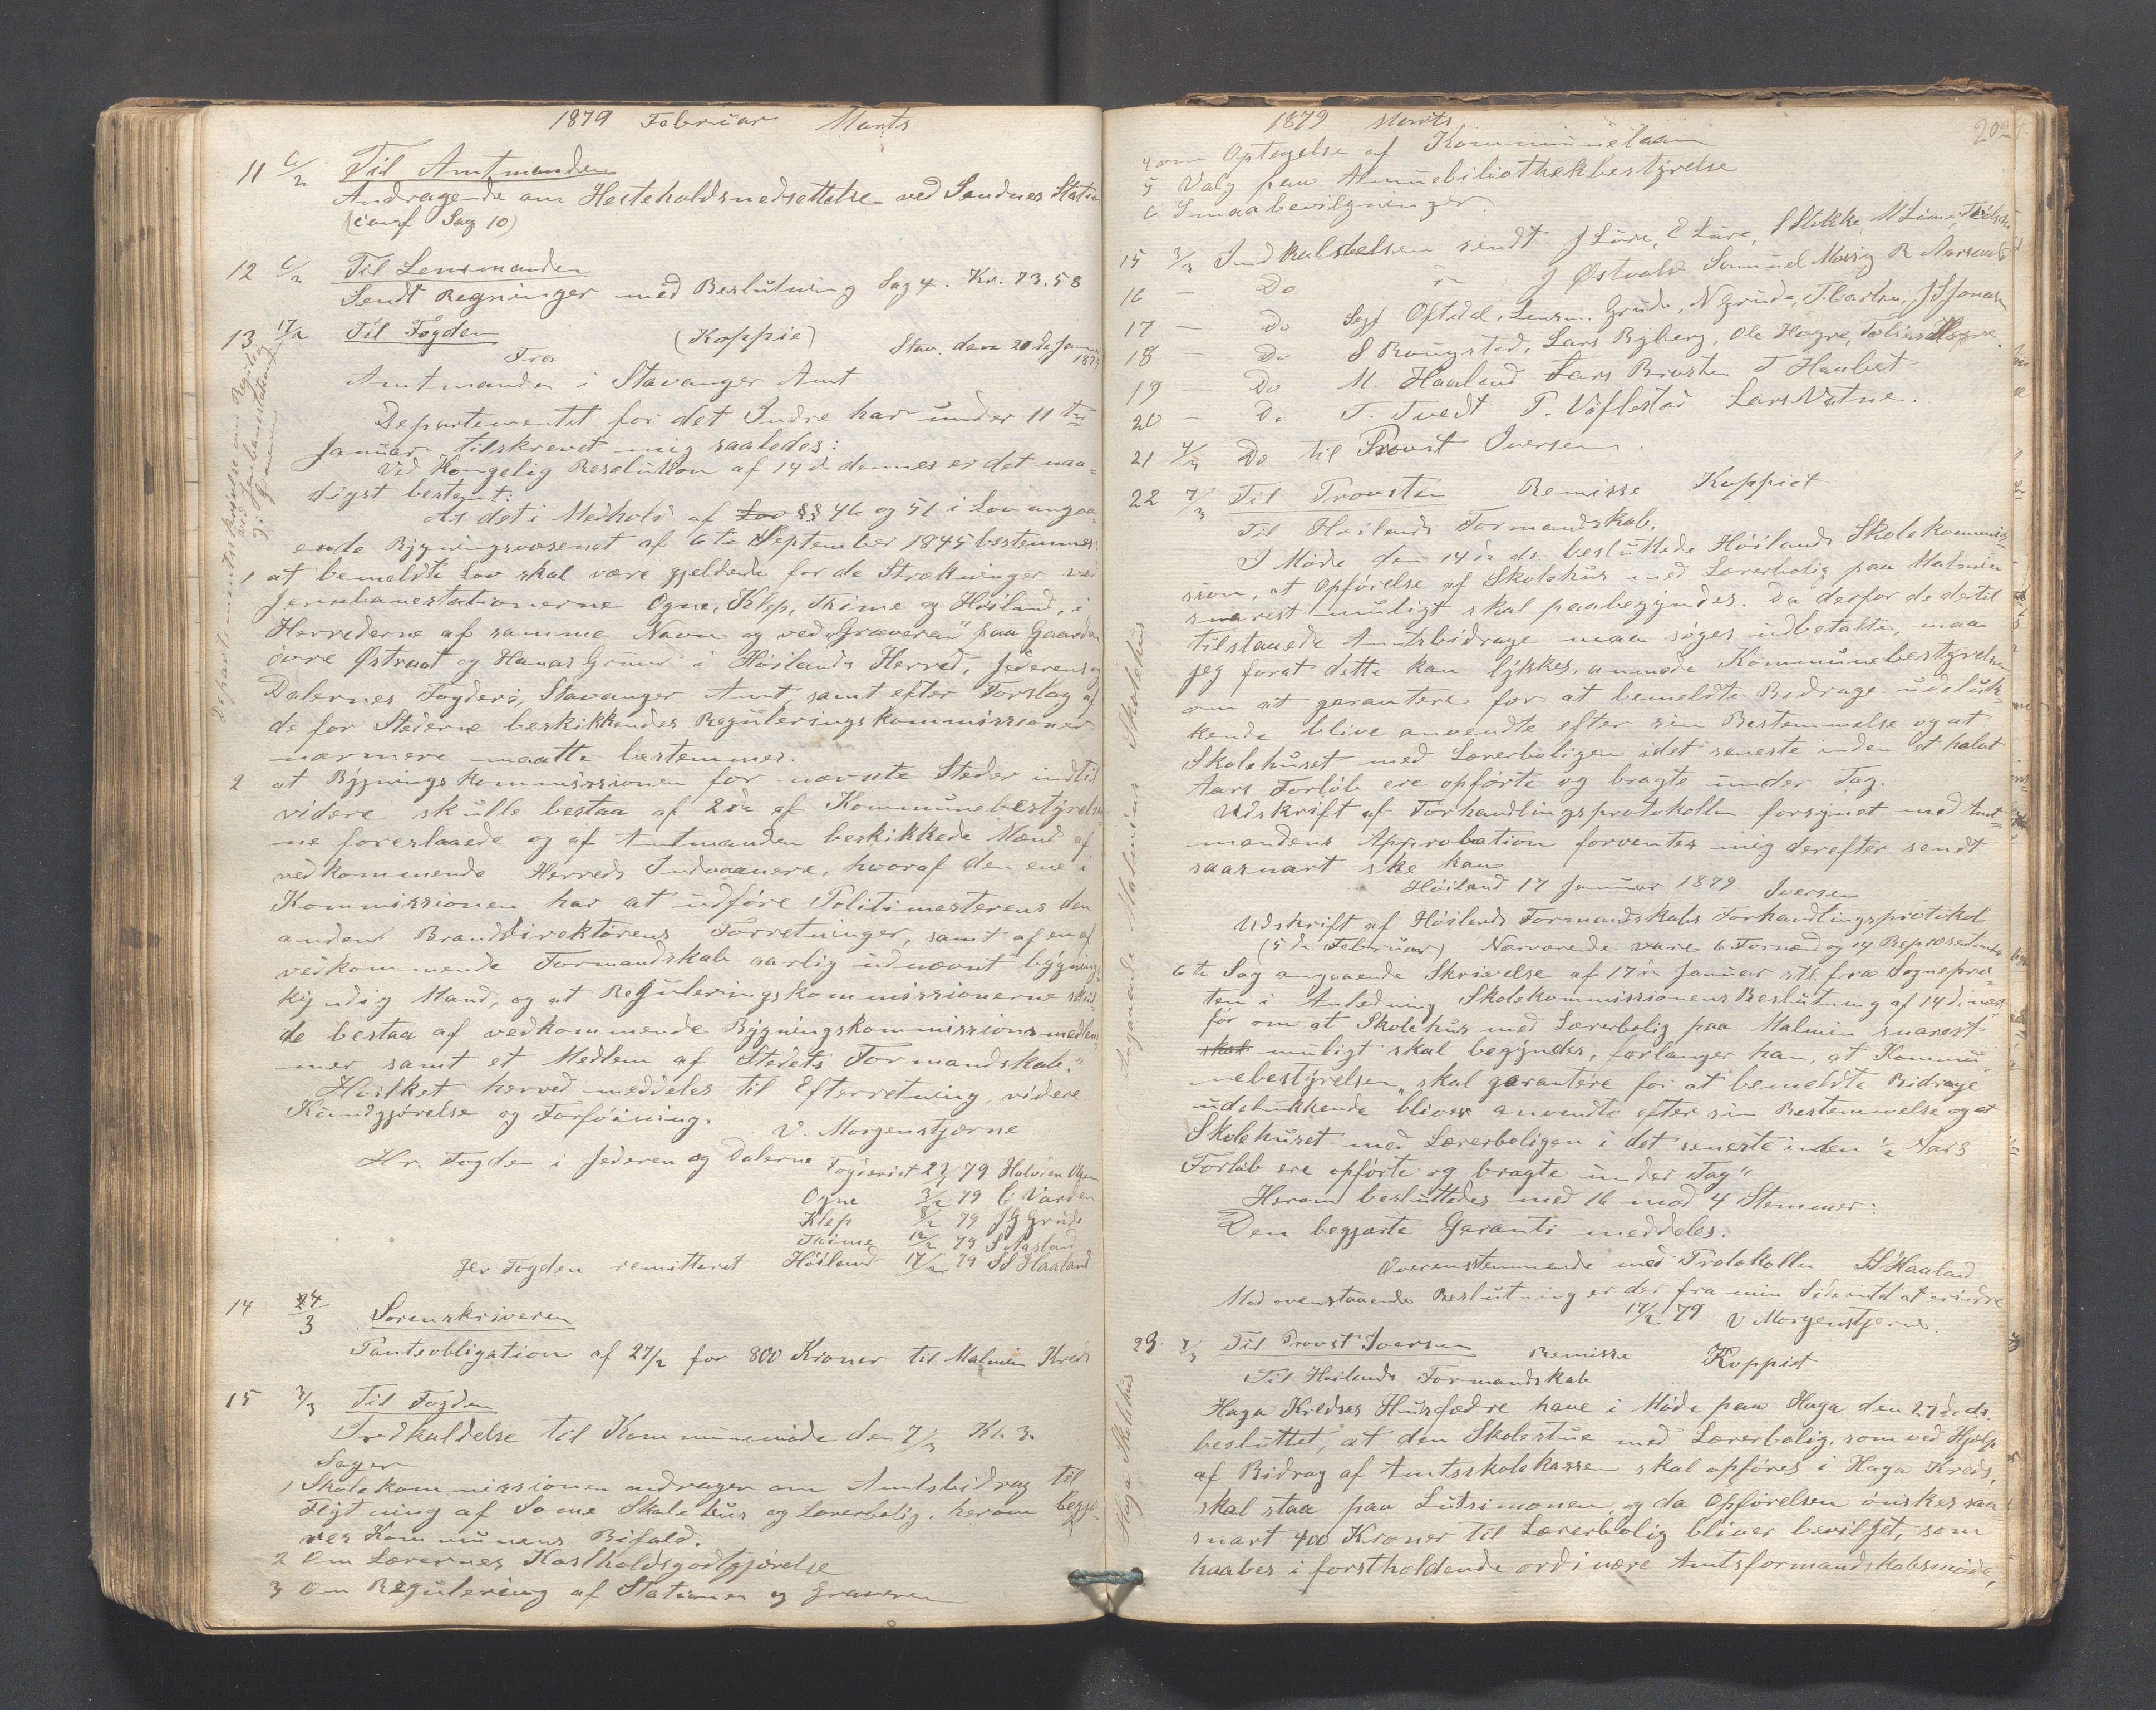 1879 Februar Marts
11 6/2 Til Amtmanden
Andragende om Hesteholdsnedsettelse ved Sandnes Station
(conf Sag 10)
12 6/2 Til Lensmanden
Sendt Regninger med Beslutning Sag 4. Kr. 73.58
13 17/2 Til Fogden (Koppie)
Fra Stav. den 20de Januar 1879
Amtmanden i Stavanger Amt
Departementet for det Indre har under 11te
Januar tilskrevet mig saaledes:
Ved Kongelig Resolution af 14 d. dennes er det naa-
digst bestemt:
At det i Medhold af Lov §§ 46 og 51 i Lov angaa-
ende Bygningsvæsenet af 6te September 1845 bestemmes:
1 at bemeldte Lov skal være gjeldende for de Strækninger ved
Jernbanestationerne Ogne, Klep, Thime og Höiland, i
Herrederne af samme Navn og ved "Graveren" paa Gaarden
övre Østraat og Hanas Grund i Höilands Herred, Jederens og
Dalernes Fogderi, Stavanger Amt, samt efter Forslag af
de for Stederne beskikkendes Reguleringskommissioner
nærmere maatte bestemmes.
2 at Bygningskommissionen for nævnte Steder indtil
videre skulle bestaa af 2de af Kommunebestyrelser-
ne foreslaaede og af Amtmanden beskikkede Mænd af
vedkommende Herreds Indvaanere, hvoraf den ene i
Kommissionen har at udföre Politimesterens den
anden Branddirektörens Forretninger, samt af en af
vedkommende Formandskab aarlig udnævnt bygnings-
kyndig Mand, og at Reguleringskommissionerne skul-
de bestaa af vedkommende Bygningskommissionsmedlem-
mer samt et Medlem af Stedets Formandskab."
Hvilket herved meddeles til Efterretning, videre
Kundgjörelse og Forföining.
V. Morgenstjerne
Hr. Fogden i Jederen og Dalerne
Ogne 3/2 79
Klep 8/2 79 J G Grude
Thime 12/2 79 S Aasland
Hr Fogden remitteret Höiland 17/2 79 SS Haaland
Departementsskrivelse om Regulering
ved Jernbanestationen
og Graveren
14 24/3 Sorenskriveren
Panteobligation af 27/2 for 800 Kroner til Malmin Kreds
15 3/3 Til Fogden
Indkaldelse til Kommunemöde den 7/3 Kl. 3.
Sager
1 Skolekommissionen andrager om Amtsbidrag til
af Some Skolehus og Lærerbolig. herom begjæ-
res Kommunens Bifald.
2 Om Lærernes Kostholdsgodtgjörelse
3 Om Regulering af Stationen og Graveren
1879 Marts
202
4 om Optagelse af Kommunelaan
5 Valg paa Almuebibliothekbestyrelse
6 Smaabevilgninger.
15 3/3 Indkaldelsen sendt J Lura, E Lura, S Stokke, M Lima,
16 — Do J Østvold Samuel R Aarsvold
17 — Do Oftedal, Lensm. Grude, N Grude, J Jonasen
18 — Do S Rougstad, Lars Ryberg, Ole Hogre, Tobias Hogre.
19 — Do M. Haaland Lars Brosten T Haabet
20 — Do T. Tvedt P. Lars Vatne.
21 4/3 Do til Provst Iversen.
22 7/3 Til Provsten Remisse Koppiet
Til Höilands Formandskab.
I Möde den 14de ds. besluttede Höilands Skolekommis-
sion, at Opförelse af Skolehus med Lærerbolig paa Malmin
snarest muligt skal paabegyndes. Da derfor de dertil
tilstaaede Amtsbidrage maa söges udbetalte, maa
jeg forat dette kan lykkes, anmode Kommunebestyrelsen
om at garantere for at bemeldte Bidrage udeluk-
kende blive anvendte efter sin Bestemmelse og at
Skolehuset med Lærerboligen i det seneste inden et halvt
Aars Forlöb ere opförte og bragte under Tag.
Udskrift af Forhandlingsprotokollen forsynet med Amt-
mandens Approbation forventes mig derefter sendt
saasnart ske kan
Höiland 17 Januar 1879 Iversen
Udskrift af Höilands Formandskabs Forhandlingsprotokol
(5 de Februar) Nærværende vare 6 Formænd og 14 Repræsentanter
6te Sag angaaende Skrivelse af 17de Januar fra Sognepræ-
ten i Anledning Skolekommissionens Beslutning af 14 d.
för om at Skolehus med Lærerbolig paa Malmin snarest
skal muligt skal begyndes, forlanger han, at Kommu-
nebestyrelsen "skal garantére for at bemeldte Bidrage
udelukkende bliver anvendte efter sin Bestemmelse og at
Skolehuset med Lærerboligen i det seneste inden 1/2 Aars
Forlöb ere opförte og bragte under Tag"
Herom besluttedes med 16 mod 4 Stemmer:
Den begjærte Garanti meddeles.
Overensstemmende med Protokollen SS Haaland
Mod ovenstaaende Beslutning er der fra min Side intet at erindre
17/2 79 V Morgenstjerne.
Angaaende Malmins Skolehus
23. 7/3 Til Provst Iversen Remisse Koppiet
Til Höilands Formandskab
Haga Kredses Husfædre have i Möde paa Haga den 27de ds.
besluttet, at den Skolestue med Lærerbolig, som ved Hjælp
af Bidrag af Amtsskolekassen skal opföres i Haga Kreds,
skal staa paa Lutsimonen, og da Opförelsen önskes saa
snart 400 Kroner til Lærerbolig bliver bevilget, som
haabes i forstholdende ordinære Amtsformandskabsmöde,
Haga Skolehus